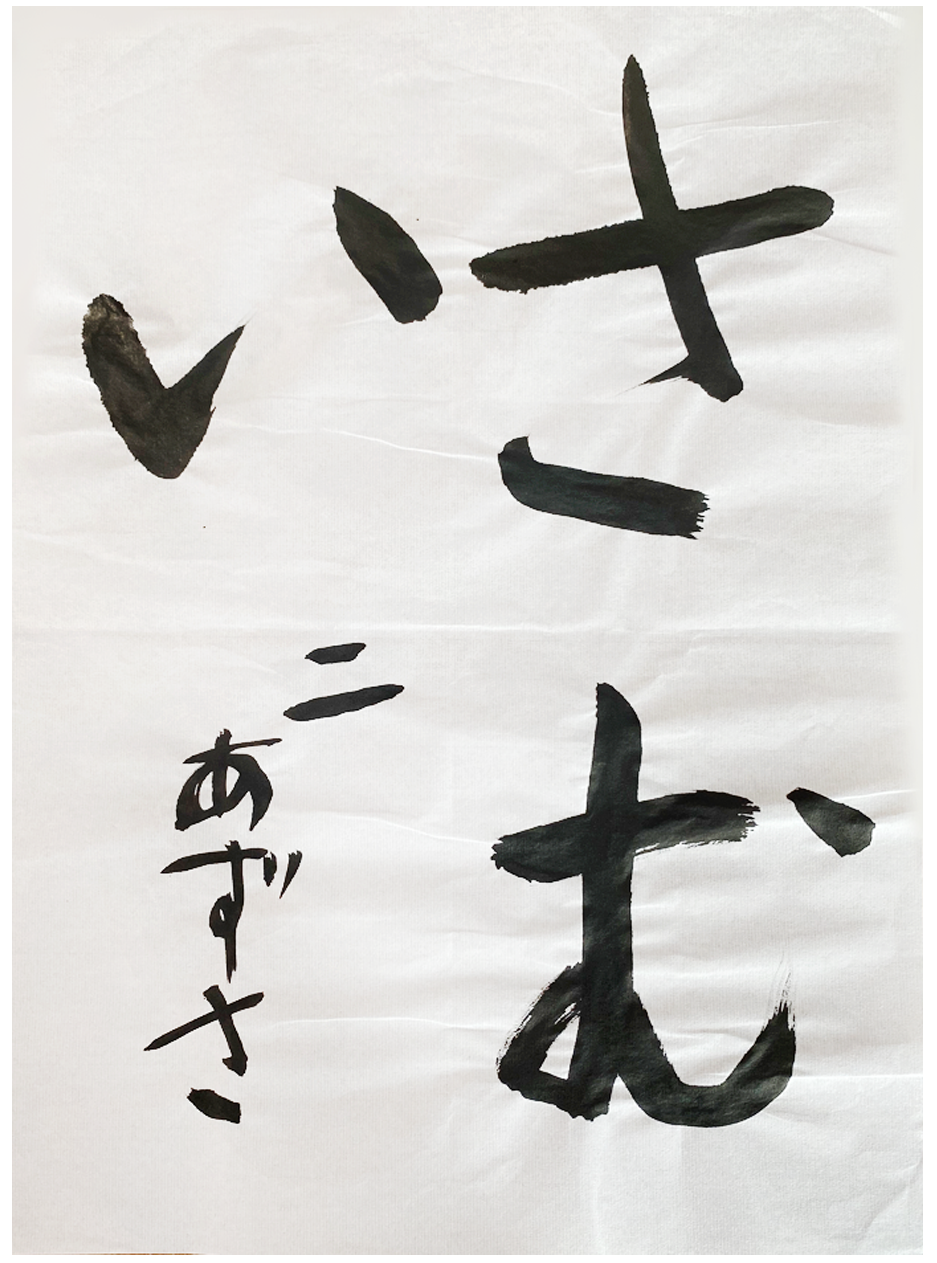 さむ
い
二 あずさ